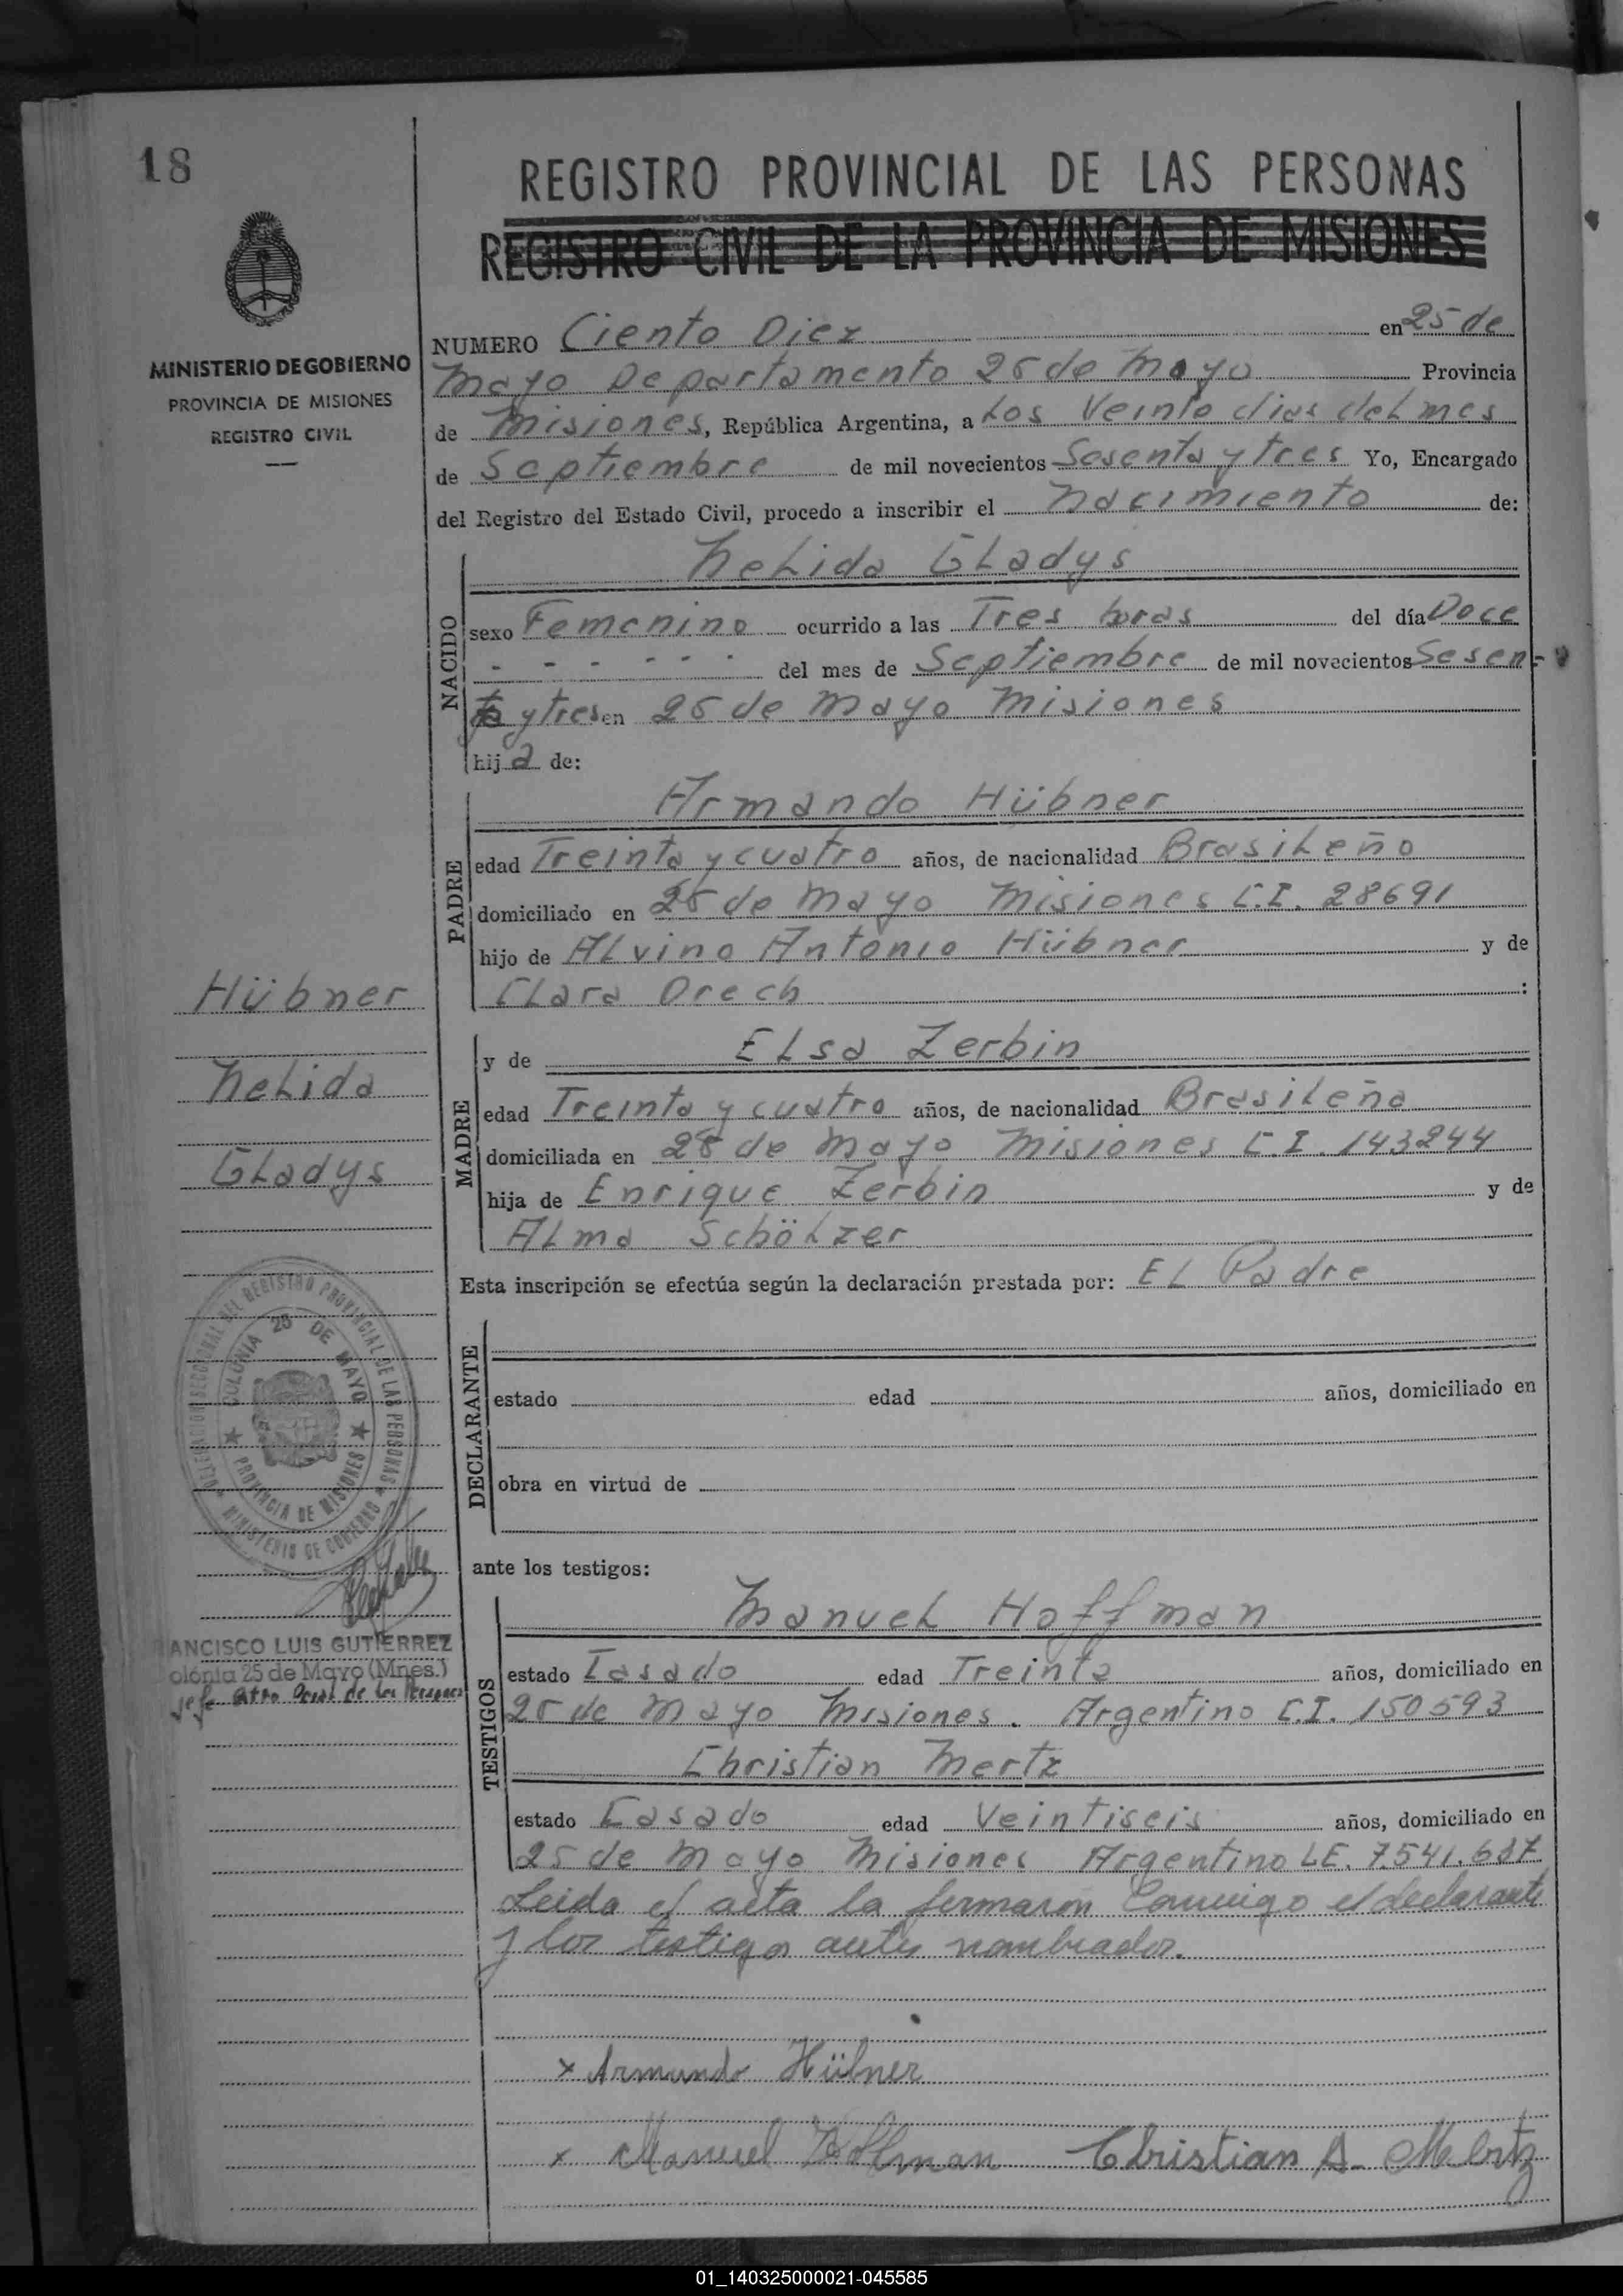 18
REGISTRO PROVINCIAL DE LAS PERSONAS
REGISTRO CIVIL DE LA PROVINCIA DE MISIONES
MINISTERIO DE GOBIERNO
PROVINCIA DE MISIONES
REGISTRO CIVIL
NUMERO Ciento Diez en 25 de
Mayo Departamento 25 de Mayo Provincia
de Misiones, República Argentina, a Los Veinte dias del mes
de Septiembre de mil novecientos Sesenta y tres Yo, Encargado
del Registro del Estado Civil, procedo a inscribir el Nacimiento de:
NACIDO
Nelida Gladys
sexo Femenino ocurrido a las Tres horas del día Doce
- - - - - - del mes de Septiembre de mil novecientos Sesen-
ta y tres en 25 de Mayo Misiones
hija de:
PADRE
Armando Hübner
edad Treinta y cuatro años, de nacionalidad Brasileño
domiciliado en 25 de Mayo Misiones C.I. 28691
hijo de Alvino Antonio Hübner y de
Clara Drech :
Hübner
Nelida
Gladys
MADRE
y de Elsa Zerbin
edad Treinta y cuatro años, de nacionalidad Brasileña
domiciliada en 25 de Mayo Misiones C.I. 143244
hija de Enrique Zerbin y de
Alma Schölzer
Esta inscripción se efectúa según la declaración prestada por: El Padre
DECLARANTE
estado edad años, domiciliado en
obra en virtud de
DELEGACION SECCIONAL DEL REGISTRO PROVINCIAL DE LAS PERSONAS
MINISTERIO DE GOBIERNO
COLONIA 25 DE MAYO
PROVINCIA DE MISIONES
ante los testigos:
TESTIGOS
Manuel Hoffman
ANCISCO LUIS GUTIERREZ
olónia 25 de Mayo (Mnes.)
Jefe de las Personas
estado Casado edad Treinta años, domiciliado en
25 de Mayo Misiones. Argentino C.I. 150593
Christian Mertz
estado Casado edad Veintiseis años, domiciliado en
25 de Mayo Misiones Argentino L.E. 7.541.637
Leida el acta la firmaron Conmigo el declarante
y los testigos antes nombrados.
x Armando Hübner
x Manuel Hoffman Christian A. Mertz
01_140325000021-045585